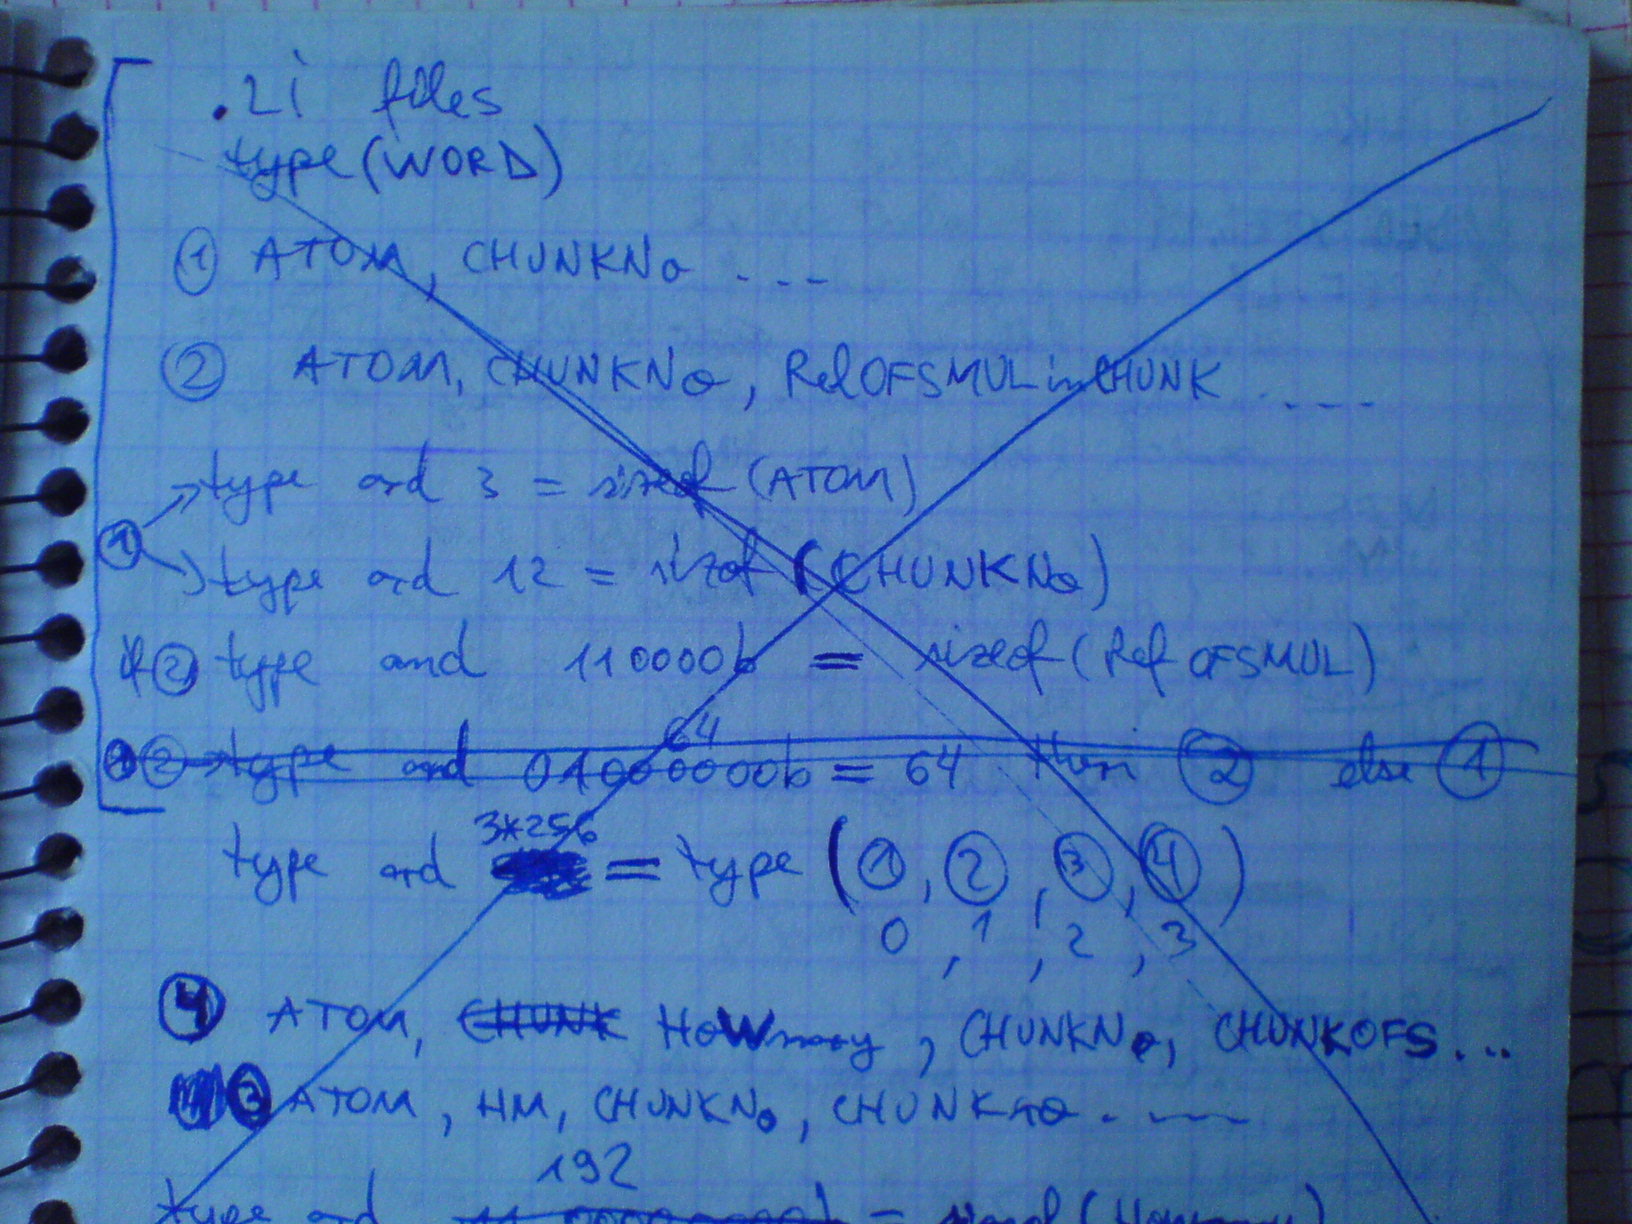 .2i files
type (WORD)
① ATOM, CHUNKNo ....
② ATOM, CHUNKNo, RelOFSMULinCHUNK ....
type and 3 = sizeof (ATOM)
①
type and 12 = sizof (CHUNKNo)
② type and 110000b = sizeof (Rel OFSMUL)
64
② type and 01000000b = 64 then ② else ①
3*256
type and = type (①, ②, ③, ④)
0, 1, 2, 3
④ ATOM, CHUNK HoWmany, CHUNKNo, CHUNKOFS...
③ ATOM, HM, CHUNKNo, ....
192
type and = sizeof (Howmany)